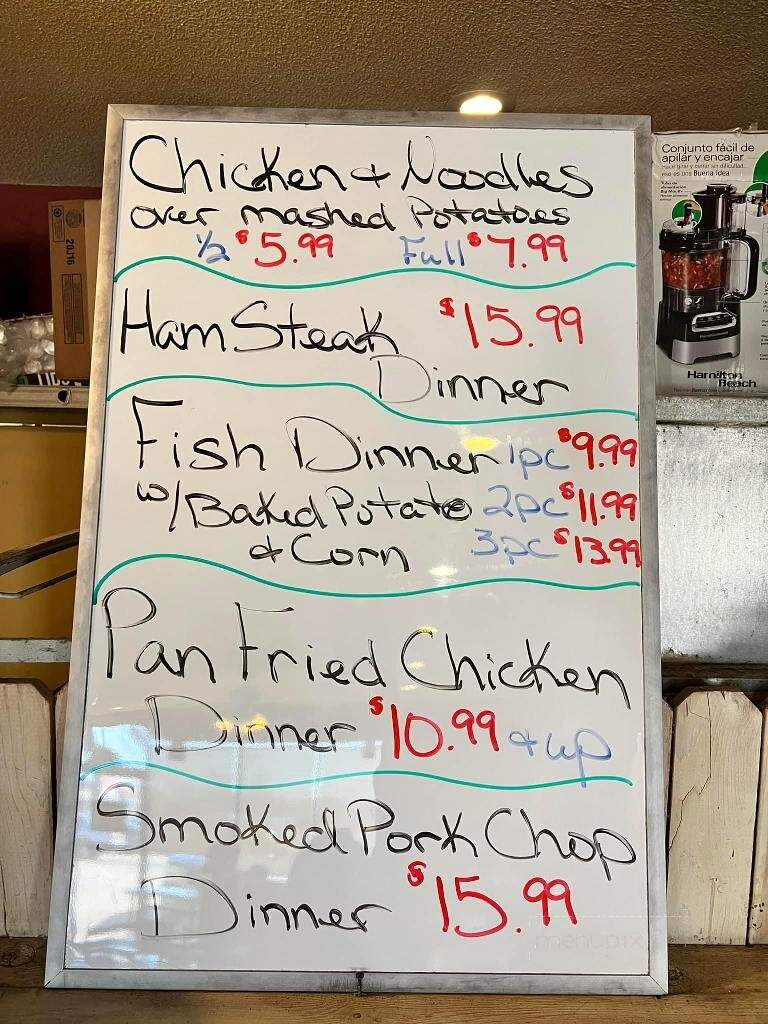 Chicken & Noodles
over mashed Potatoes
1/2 $5.99 Full $7.99
Ham Steak $15.99
Dinner
Fish Dinner 1pc $9.99
w/Baked Potato 2pc $11.99
& Corn 3pc $13.99
Pan Fried Chicken
Dinner $10.99 & up
Smoked Pork Chop
Dinner $15.99
Conjunto fácil de
apilar y encajar
Hamilton
Beach
20J16
menupix